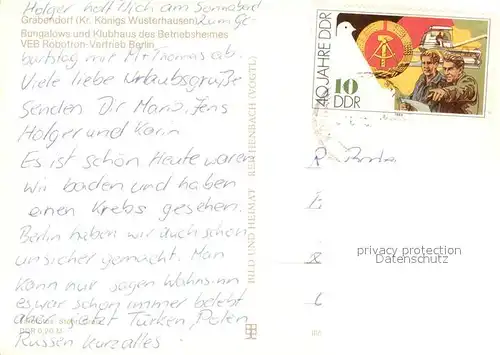 Holger holt Dich am Sonnabend
Gräbendorf (Kr. Königs Wusterhausen)
zum Ge-
Bungalows und Klubhaus des Betriebsheimes
VEB Robotron-Vertrieb Berlin
burtstag mit Thomas ab.
Viele liebe Urlaubsgrüße
senden Dir Mario, Jens
Holger und Karin
Es ist schön Heute waren
wir baden und haben
einen Krebs gesehen.
Berlin haben wir auch schon
unsicher gemacht. Man
kann nur sagen Wahnsinn
es war schon immer belebt
aber jetzt Türken, Polen
Russen kurz alles.
BILD UND HEIMAT REICHENBACH (VOGTL)
40 JAHRE DDR
10
DDR
privacy protection
Datenschutz